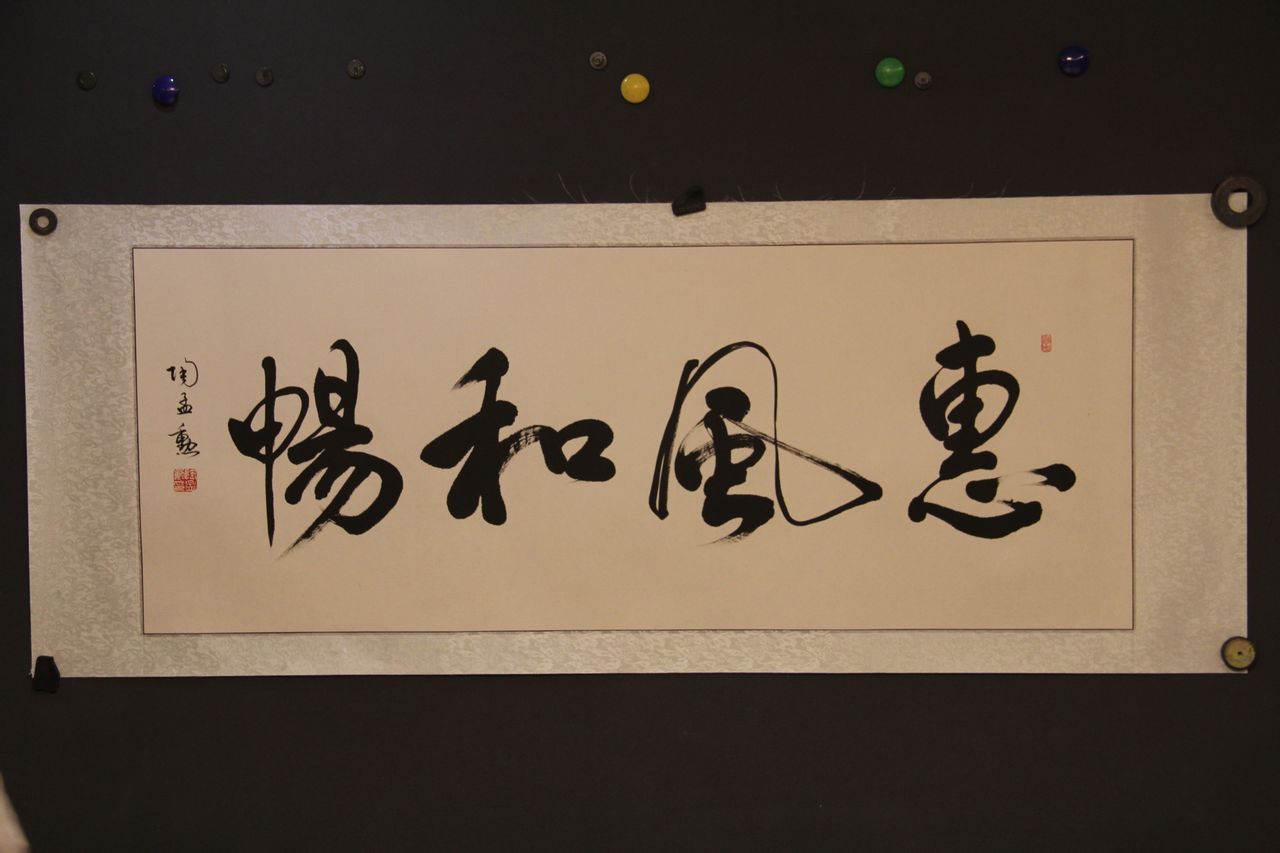 惠風和暢
陶孟勳